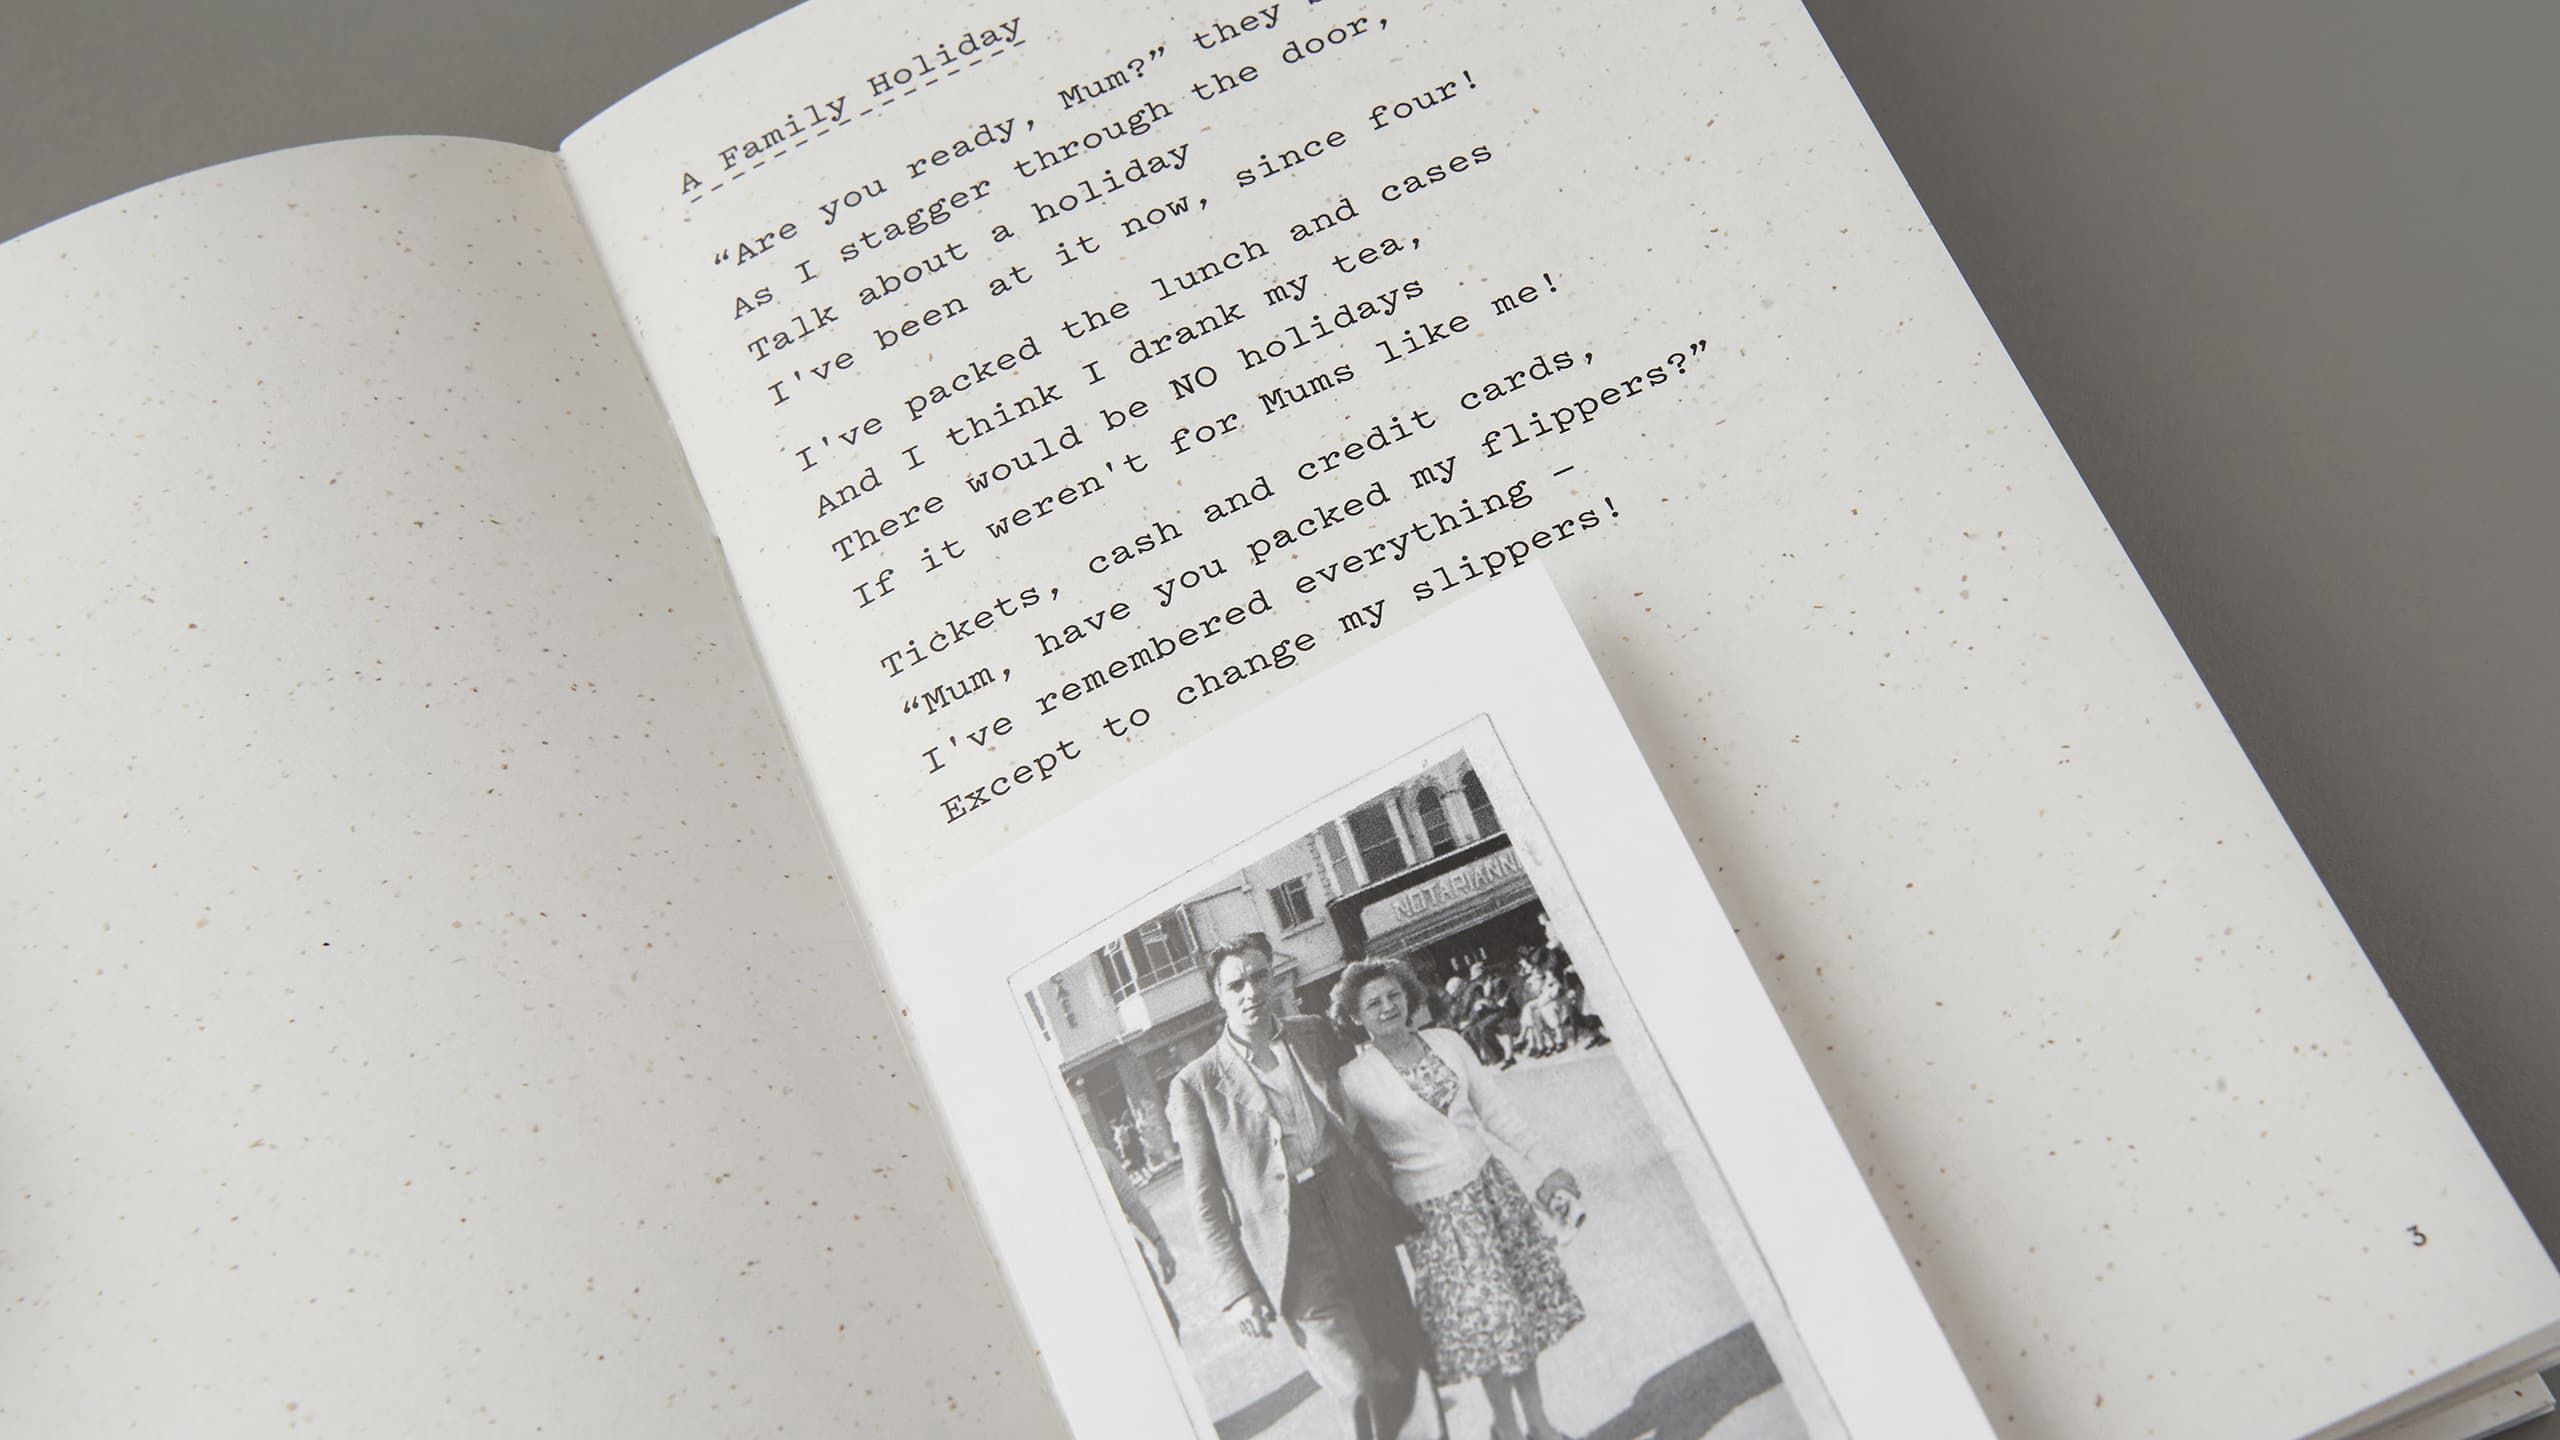 A Family Holiday
“Are you ready, Mum?” they
As I stagger through the door,
Talk about a holiday
I've been at it now, since four!
I've packed the lunch and cases
And I think I drank my tea,
There would be NO holidays
If it weren't for Mums like me!
Tickets, cash and credit cards,
“Mum, have you packed my flippers?”
I've remembered everything –
Except to change my slippers!
NOTARIANN
3